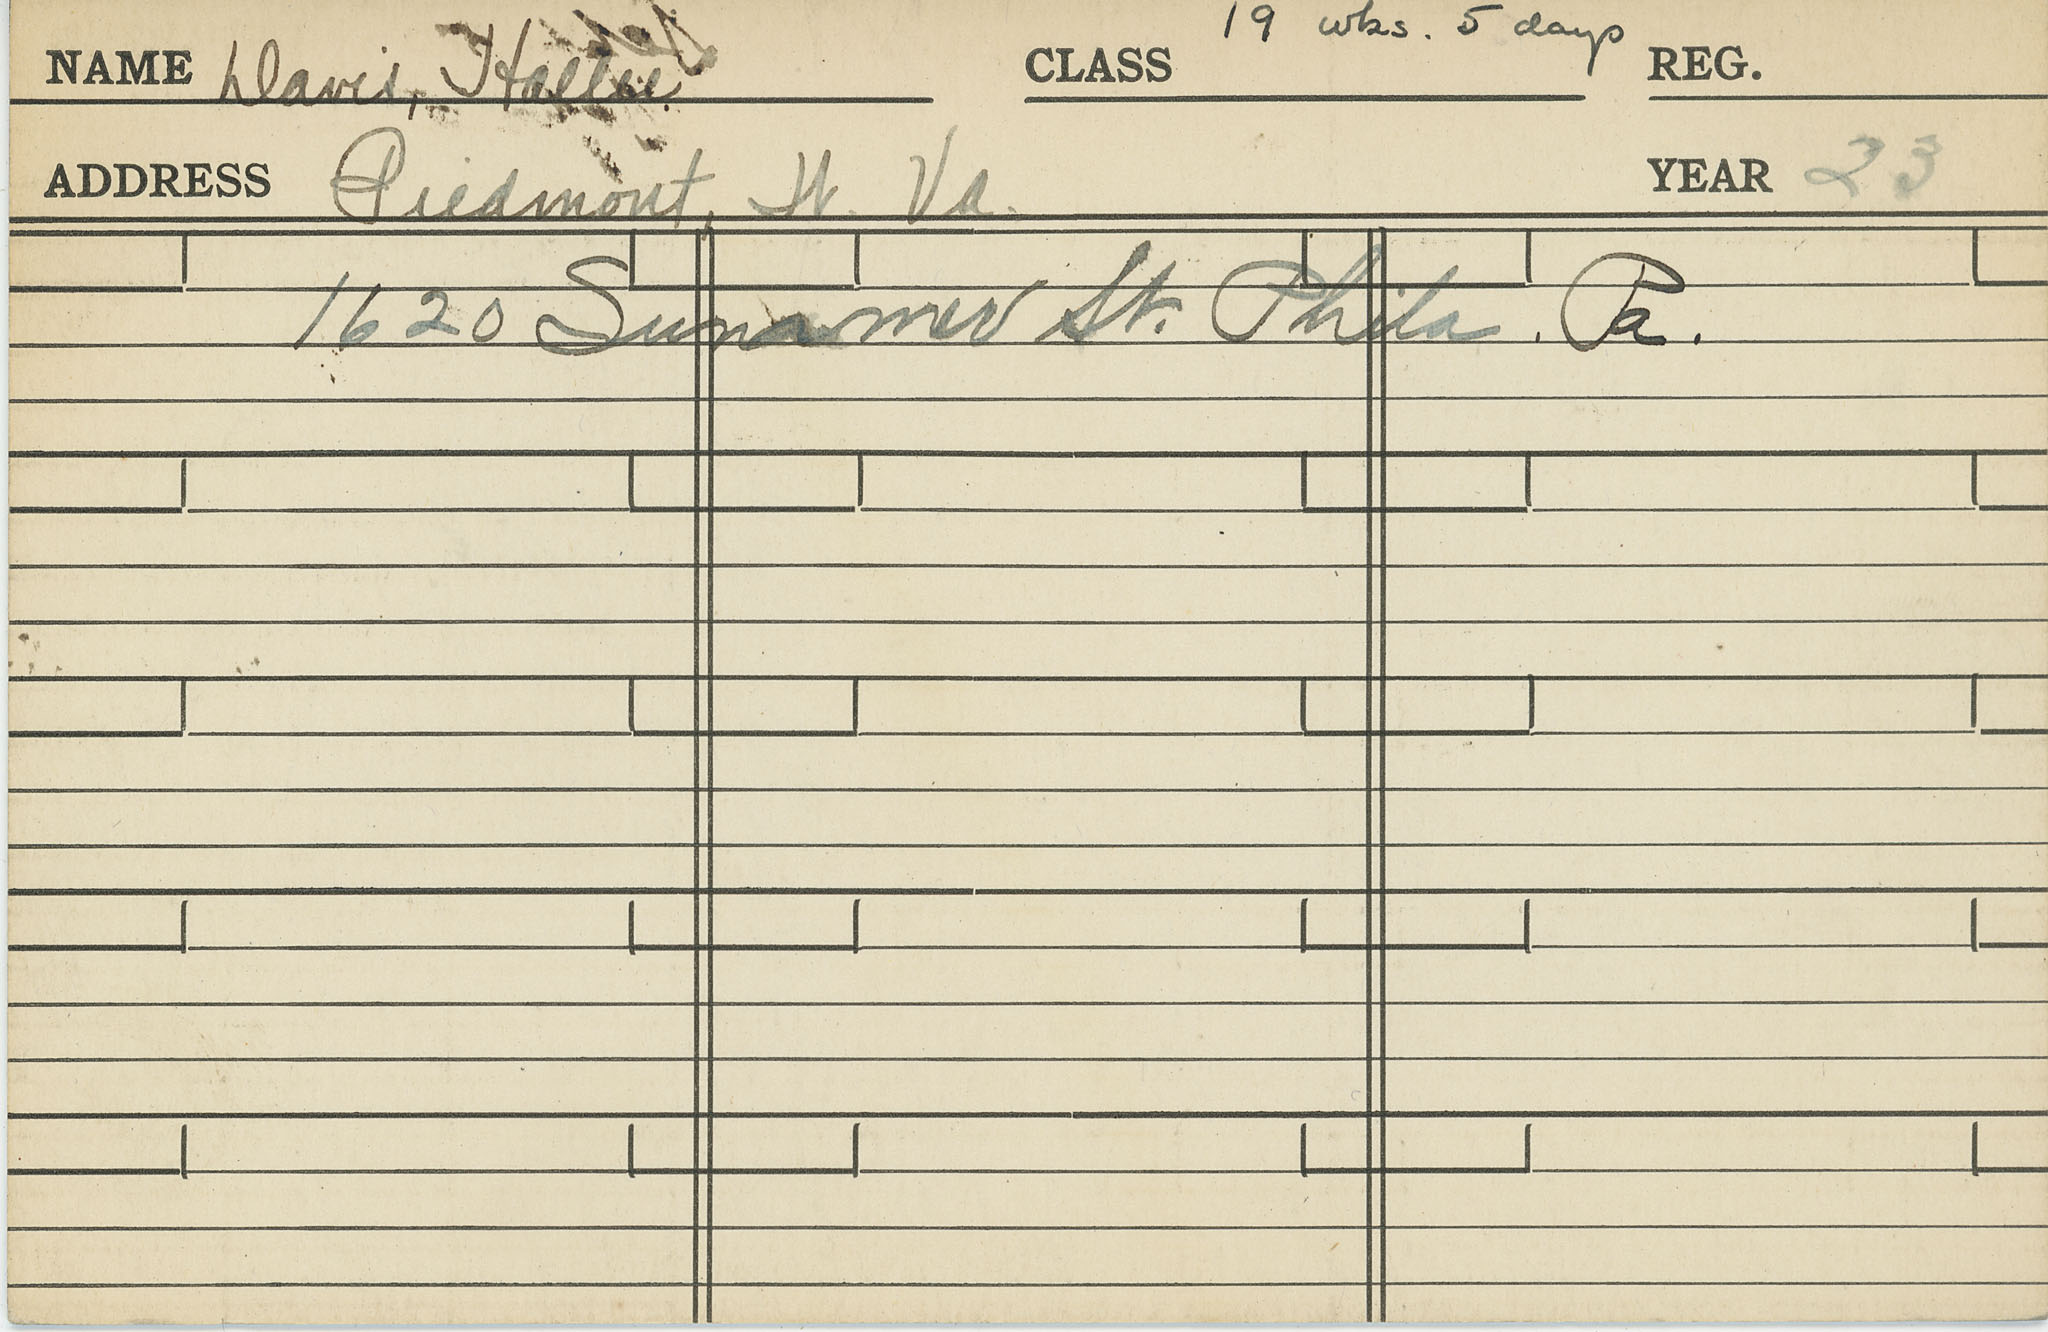 19 wks. 5 days
NAME Davis, Hallie CLASS REG.
ADDRESS Piedmont, W. Va. YEAR 23
1620 St. Phila. Pa.